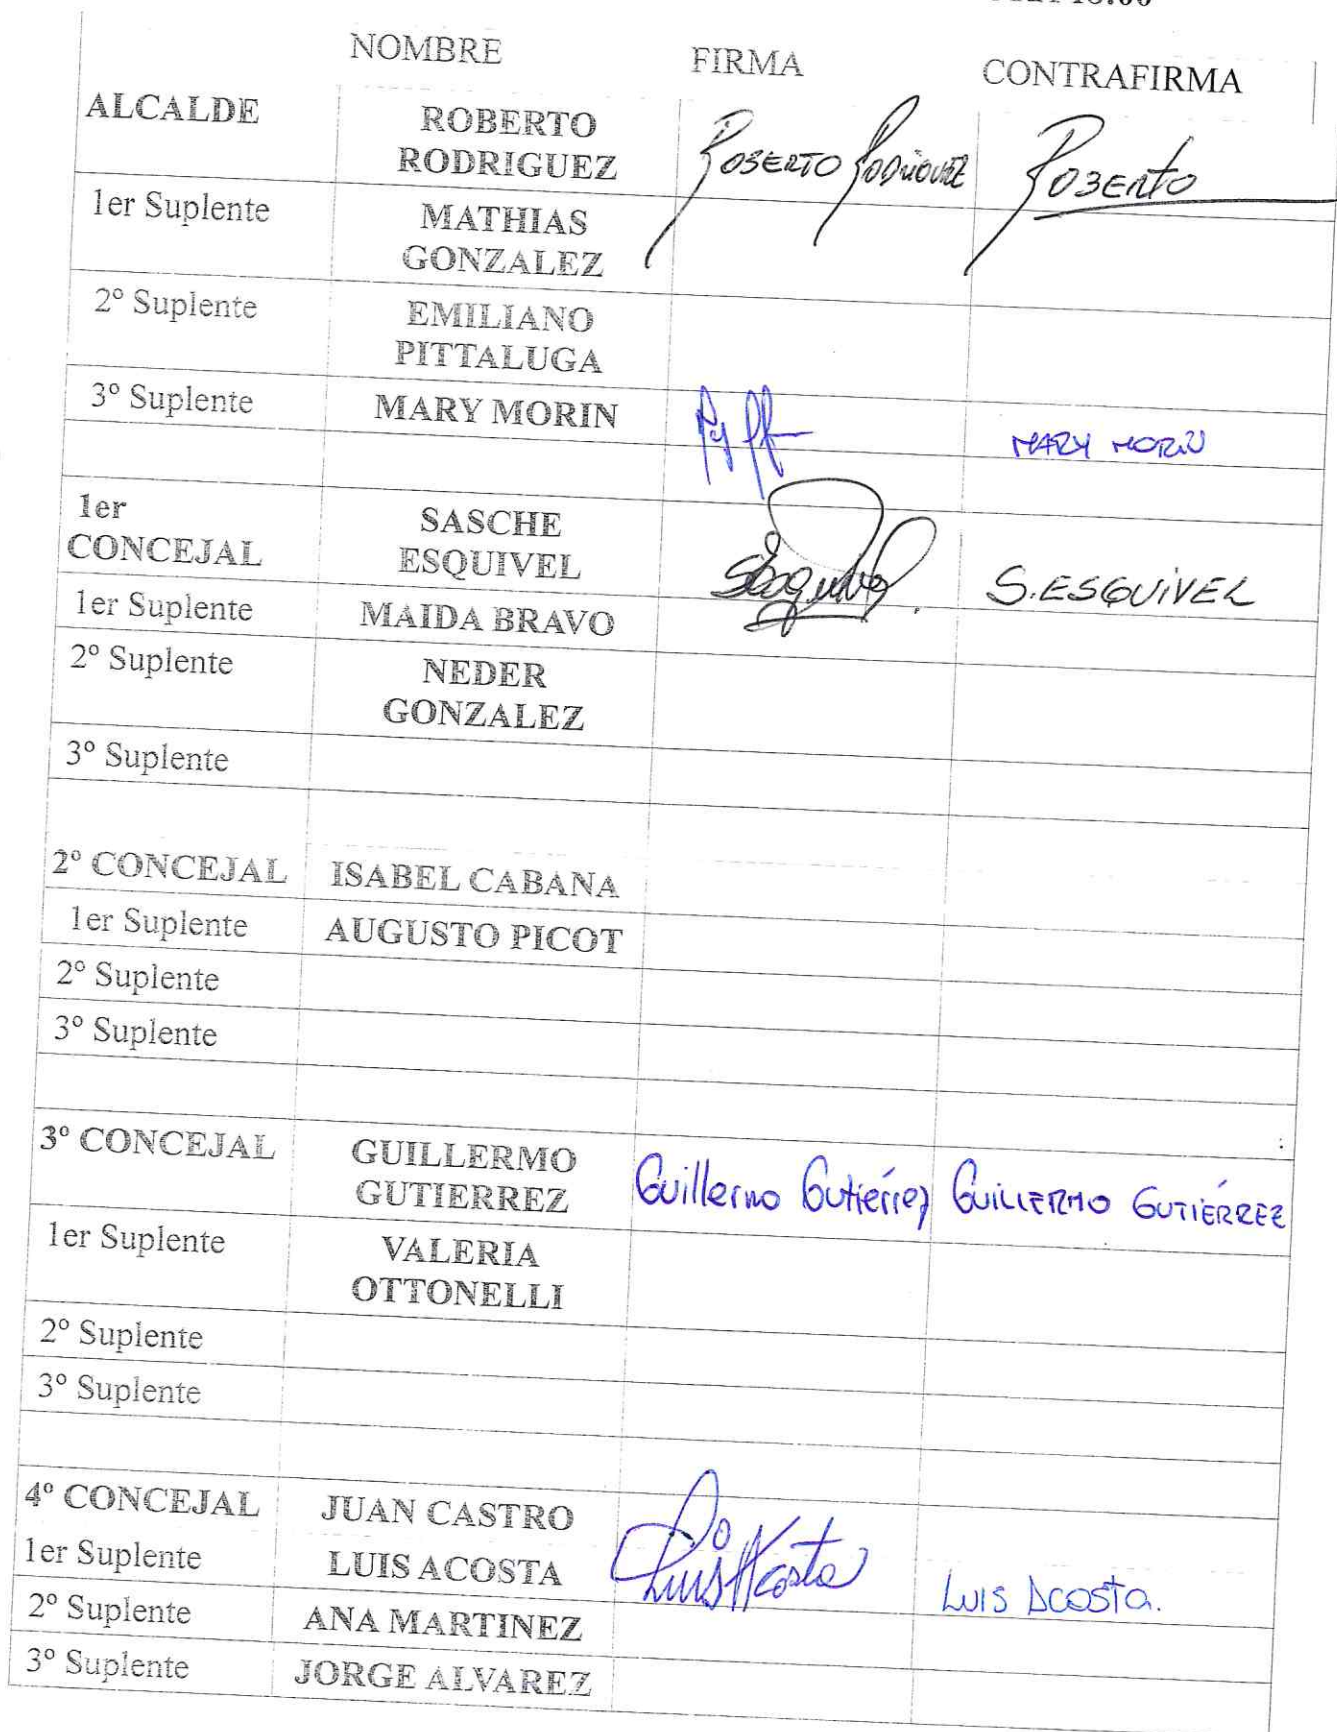 NOMBRE FIRMA CONTRAFIRMA
ALCALDE ROBERTO
RODRIGUEZ ROBERTO RODRIGUEZ ROBERTO
1er Suplente MATHIAS
GONZALEZ
2º Suplente EMILIANO
PITTALUGA
3º Suplente MARY MORIN MARY MORIN
1er
CONCEJAL SASCHE
ESQUIVEL SEsquivel S. ESQUIVEL
1er Suplente MAIDA BRAVO
2º Suplente NEDER
GONZALEZ
3º Suplente
2º CONCEJAL ISABEL CABANA
1er Suplente AUGUSTO PICOT
2º Suplente
3º Suplente
3º CONCEJAL GUILLERMO
GUTIERREZ Guillermo Gutiérrez GUILLERMO GUTIÉRREZ
1er Suplente VALERIA
OTTONELLI
2º Suplente
3º Suplente
4º CONCEJAL JUAN CASTRO
1er Suplente LUIS ACOSTA Luis Acosta LUIS ACOSTA.
2º Suplente ANA MARTINEZ
3º Suplente JORGE ALVAREZ